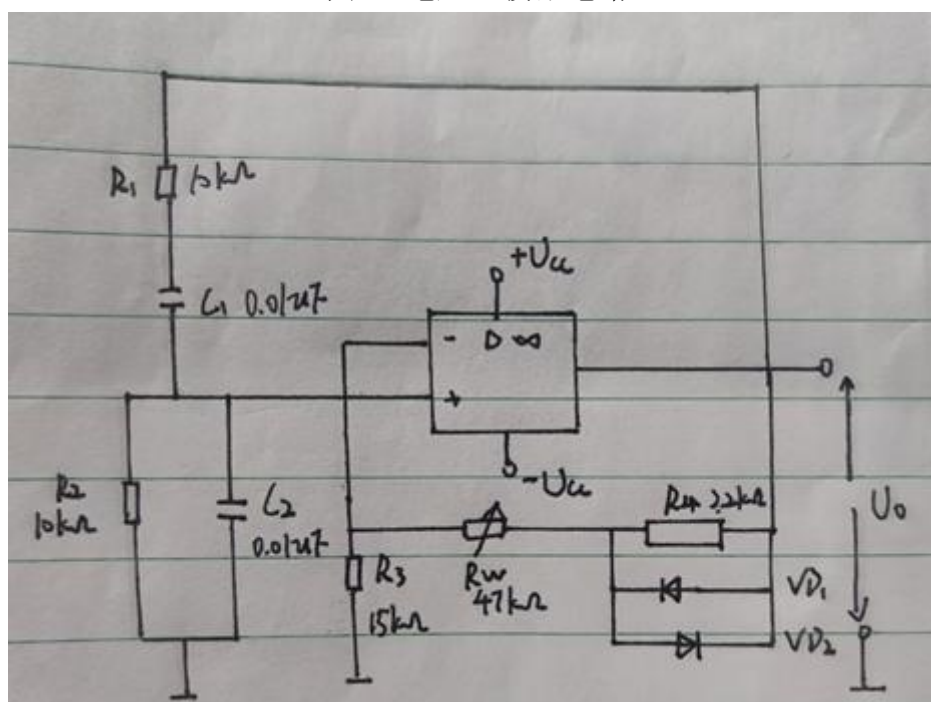 R1 10kΩ
C1 0.01uF
+Ucc
- ▷ ∞
+
-Ucc
R2
10kΩ
C2
0.01uF
R3
15kΩ
Rw
47kΩ
R4 2.2kΩ
VD1
VD2
Uo